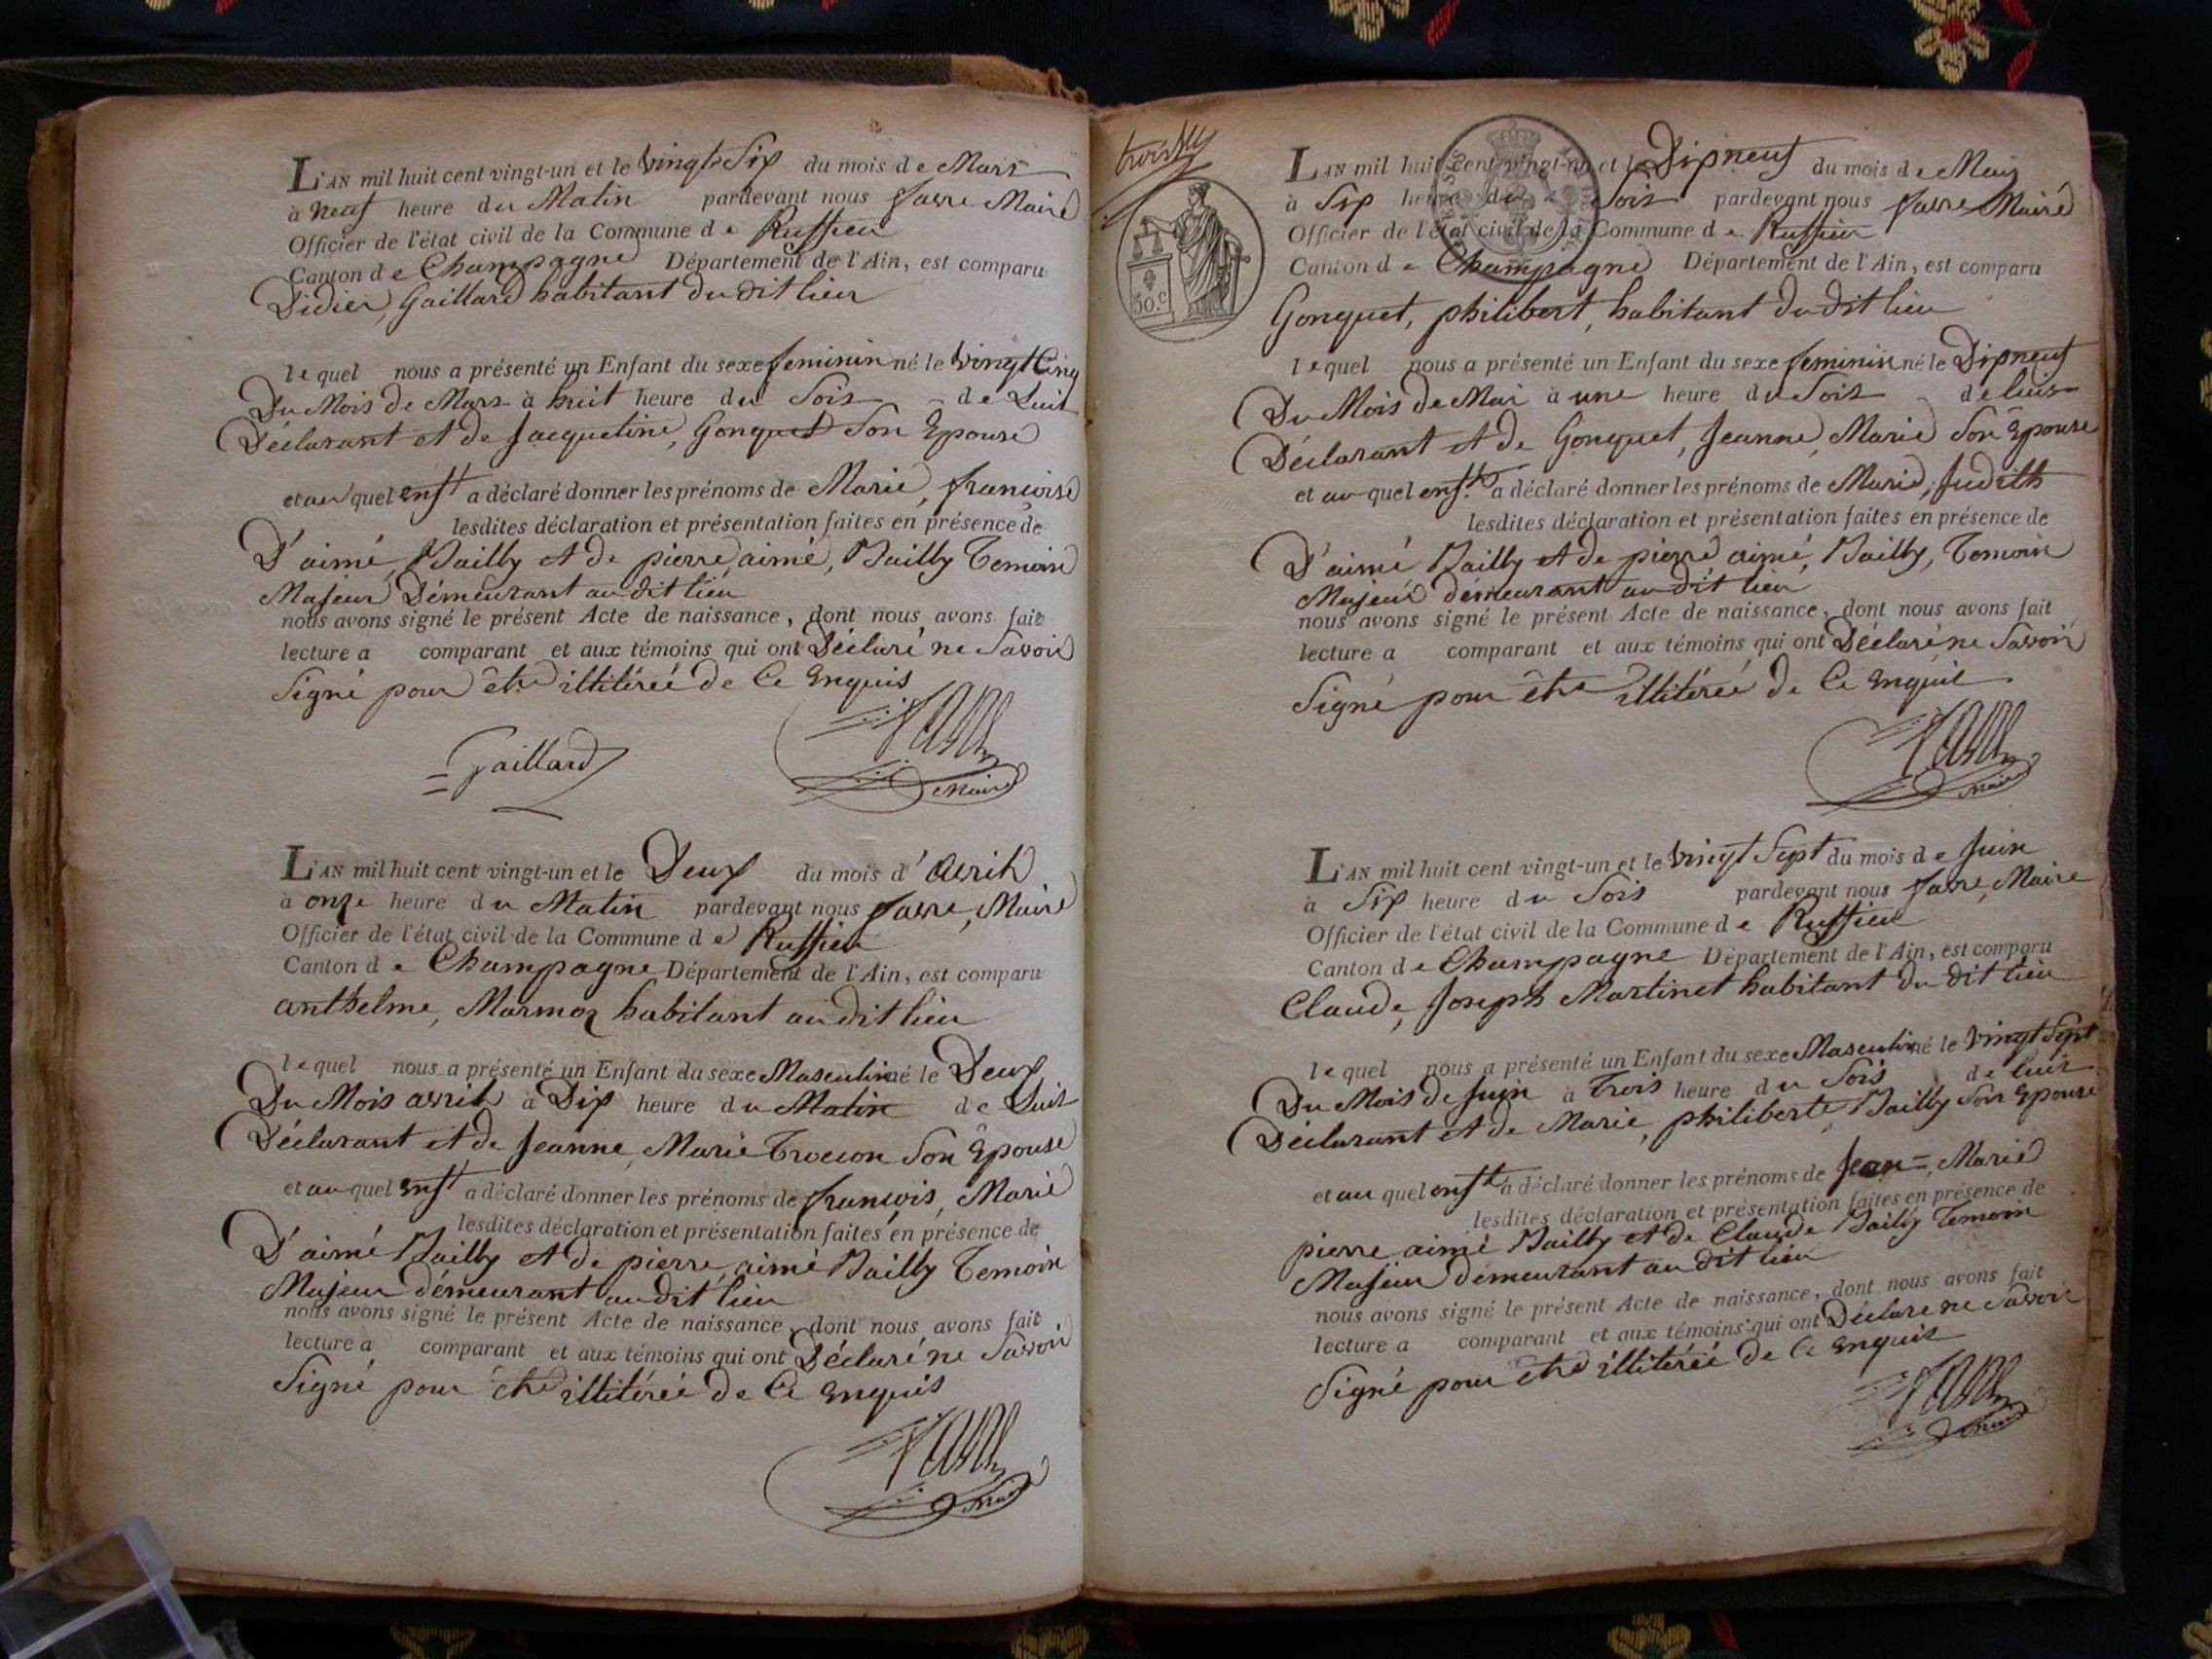 L'AN mil huit cent vingt-un et le Vingt Six du mois de Mars
à neuf heure du Matin pardevant nous favre Maire
Officier de l'état civil de la Commune de Ruffieu
Canton de Champagne Département de l'Ain, est comparu
Didier, Gaillard habitant du dit lieu
lequel nous a présenté un Enfant du sexe feminin né le Vingt Cinq
Du Mois de Mars à huit heure du Soir de Luit
Déclarant et de Jacqueline, Gonguet Son Epouse
et au quel enft a déclaré donner les prénoms de Marie, françoise
lesdites déclaration et présentation faites en présence de
D'aimé, Bailly et de pierre, aimé, Bailly Temoin
Majeur Démeurant au dit lieu
nous avons signé le présent Acte de naissance, dont nous avons fait
lecture a comparant et aux témoins qui ont Déclaré ne Savoir
Signé pour être illitérée de Ce Enquis
Gaillard
Maire
L'AN mil huit cent vingt-un et le Deux du mois d'avril
à onze heure du Matin pardevant nous favre, Maire
Officier de l'état civil de la Commune de Ruffieu
Canton de Champagne Département de l'Ain, est comparu
anthelme, Marmoz habitant au dit lieu
lequel nous a présenté un Enfant du sexe Masculin né le Deux
Du Mois avril à Dix heure du Matin de Luit
Déclarant et de Jeanne, Marie Trocon Son Epouse
et au quel enft a déclaré donner les prénoms de françois, Marie
lesdites déclaration et présentation faites en présence de
D'aimé Bailly et de pierre, aimé Bailly Temoin
Majeur démeurant au dit lieu
nous avons signé le présent Acte de naissance, dont nous avons fait
lecture a comparant et aux témoins qui ont Déclaré ne Savoir
Signé pour être illitérée de Ce Enquis
Maire
trois
50.c
L'AN mil huit cent vingt-un et le Dixneuf du mois de Mai
à Six heure du Soir pardevant nous favre Maire
Officier de l'état civil de la Commune de Ruffieu
Canton de Champagne Département de l'Ain, est comparu
Gonguet, philibert, habitant du dit lieu
lequel nous a présenté un Enfant du sexe feminin né le Dixneuf
Du Mois de Mai à une heure du Soir de luis
Déclarant et de Gonguet, Jeanne, Marie Son Epouse
et au quel enft a déclaré donner les prénoms de Marie, Judith
lesdites déclaration et présentation faites en présence de
D'aimé Bailly et de pierre aimé, Bailly, Temoin
Majeur démeurant au dit lieu
nous avons signé le présent Acte de naissance, dont nous avons fait
lecture a comparant et aux témoins qui ont Déclaré ne Savoir
Signé pour être illitérée de Ce Enquis
Maire
L'AN mil huit cent vingt-un et le Vingt Sept du mois de Juin
à Six heure du Soir pardevant nous favre, Maire
Officier de l'état civil de la Commune de Ruffieu
Canton de Champagne Département de l'Ain, est comparu
Claude, Joseph Martinet habitant du dit lieu
lequel nous a présenté un Enfant du sexe Masculin né le Vingt Sept
Du Mois de Juin à Trois heure du Soir de luis
Déclarant et de Marie, philiberte, Bailly Son Epouse
et au quel enft a déclaré donner les prénoms de Jean=, Marie
lesdites déclaration et présentation faites en présence de
pierre aimé Bailly et de Claude Bailly Temoin
Majeur démeurant au dit lieu
nous avons signé le présent Acte de naissance, dont nous avons fait
lecture a comparant et aux témoins qui ont Déclaré ne Savoir
Signé pour être illitérée de Ce Enquis
Maire